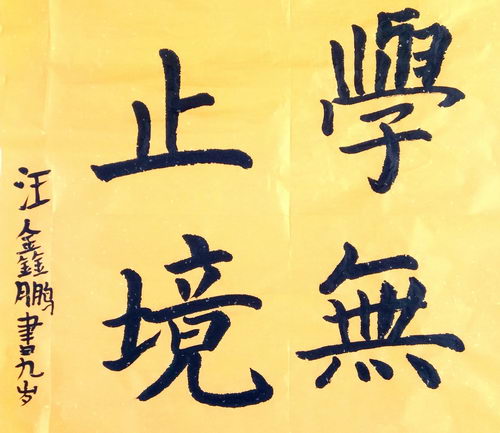 學無
止境
汪鑫鹏書九岁